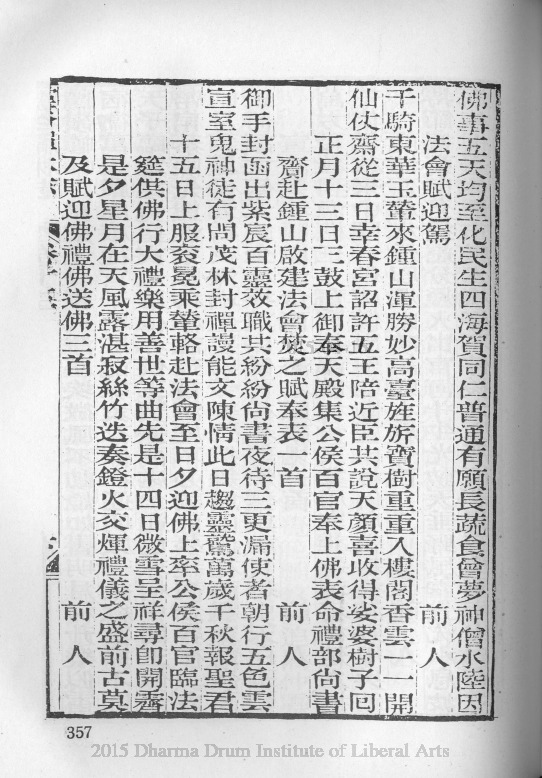 佛事五天均至化民生四海賀同仁普通有願長蔬食曾夢神僧水陸因
法會賦迎駕　前人
千騎東華玉輦來鍾山渾勝妙高臺旌旂寶樹重重入樓閣香雲一一開
仙仗齋從三日幸春宮詔許五王陪近臣共說天顏喜收得娑婆樹子回
正月十三日三鼓上御奉天殿集公侯百官奉上佛表命禮部尙書
齎赴鍾山啟建法會焚之賦奉表一首　前人
御手封函出紫宸百靈效職共紛紛尙書夜待三更漏使者朝行五色雲
宣室鬼神徒有問茂林封禪謾能文陳情此日趨靈鷲萬歲千秋報聖君
十五日上服衮冕乘輦輅赴法會至日夕迎佛上率公侯百官臨法
筵供佛行大禮樂用善世等曲先是十四日微雪呈祥尋卽開霽
是夕星月在天風露湛寂絲竹迭奏鐙火交煇禮儀之盛前古莫
及賦迎佛禮佛送佛三首　前人
357
2015 Dharma Drum Institute of Liberal Arts